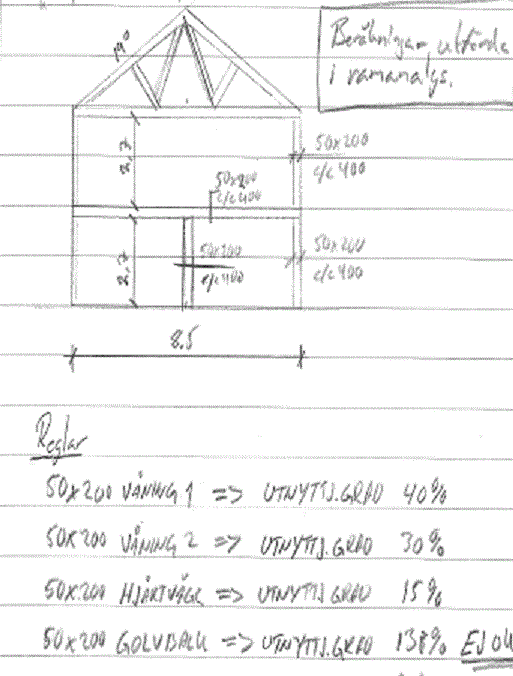 Beräkningar utförda
i ramanalys.
19°
50x200
c/c 400
2,7
50x200
c/c 400
50x200
c/c 400
50x200
c/c 400
2,7
8.5
Reglar
50x200 VÅNING 1 => UTNYTTJ.GRAD 40%
50x200 VÅNING 2 => UTNYTTJ.GRAD 30%
50x200 HJÄRTVÄGG => UTNYTTJ.GRAD 15%
50x200 GOLVBALK => UTNYTTJ.GRAD 138% EJ OK